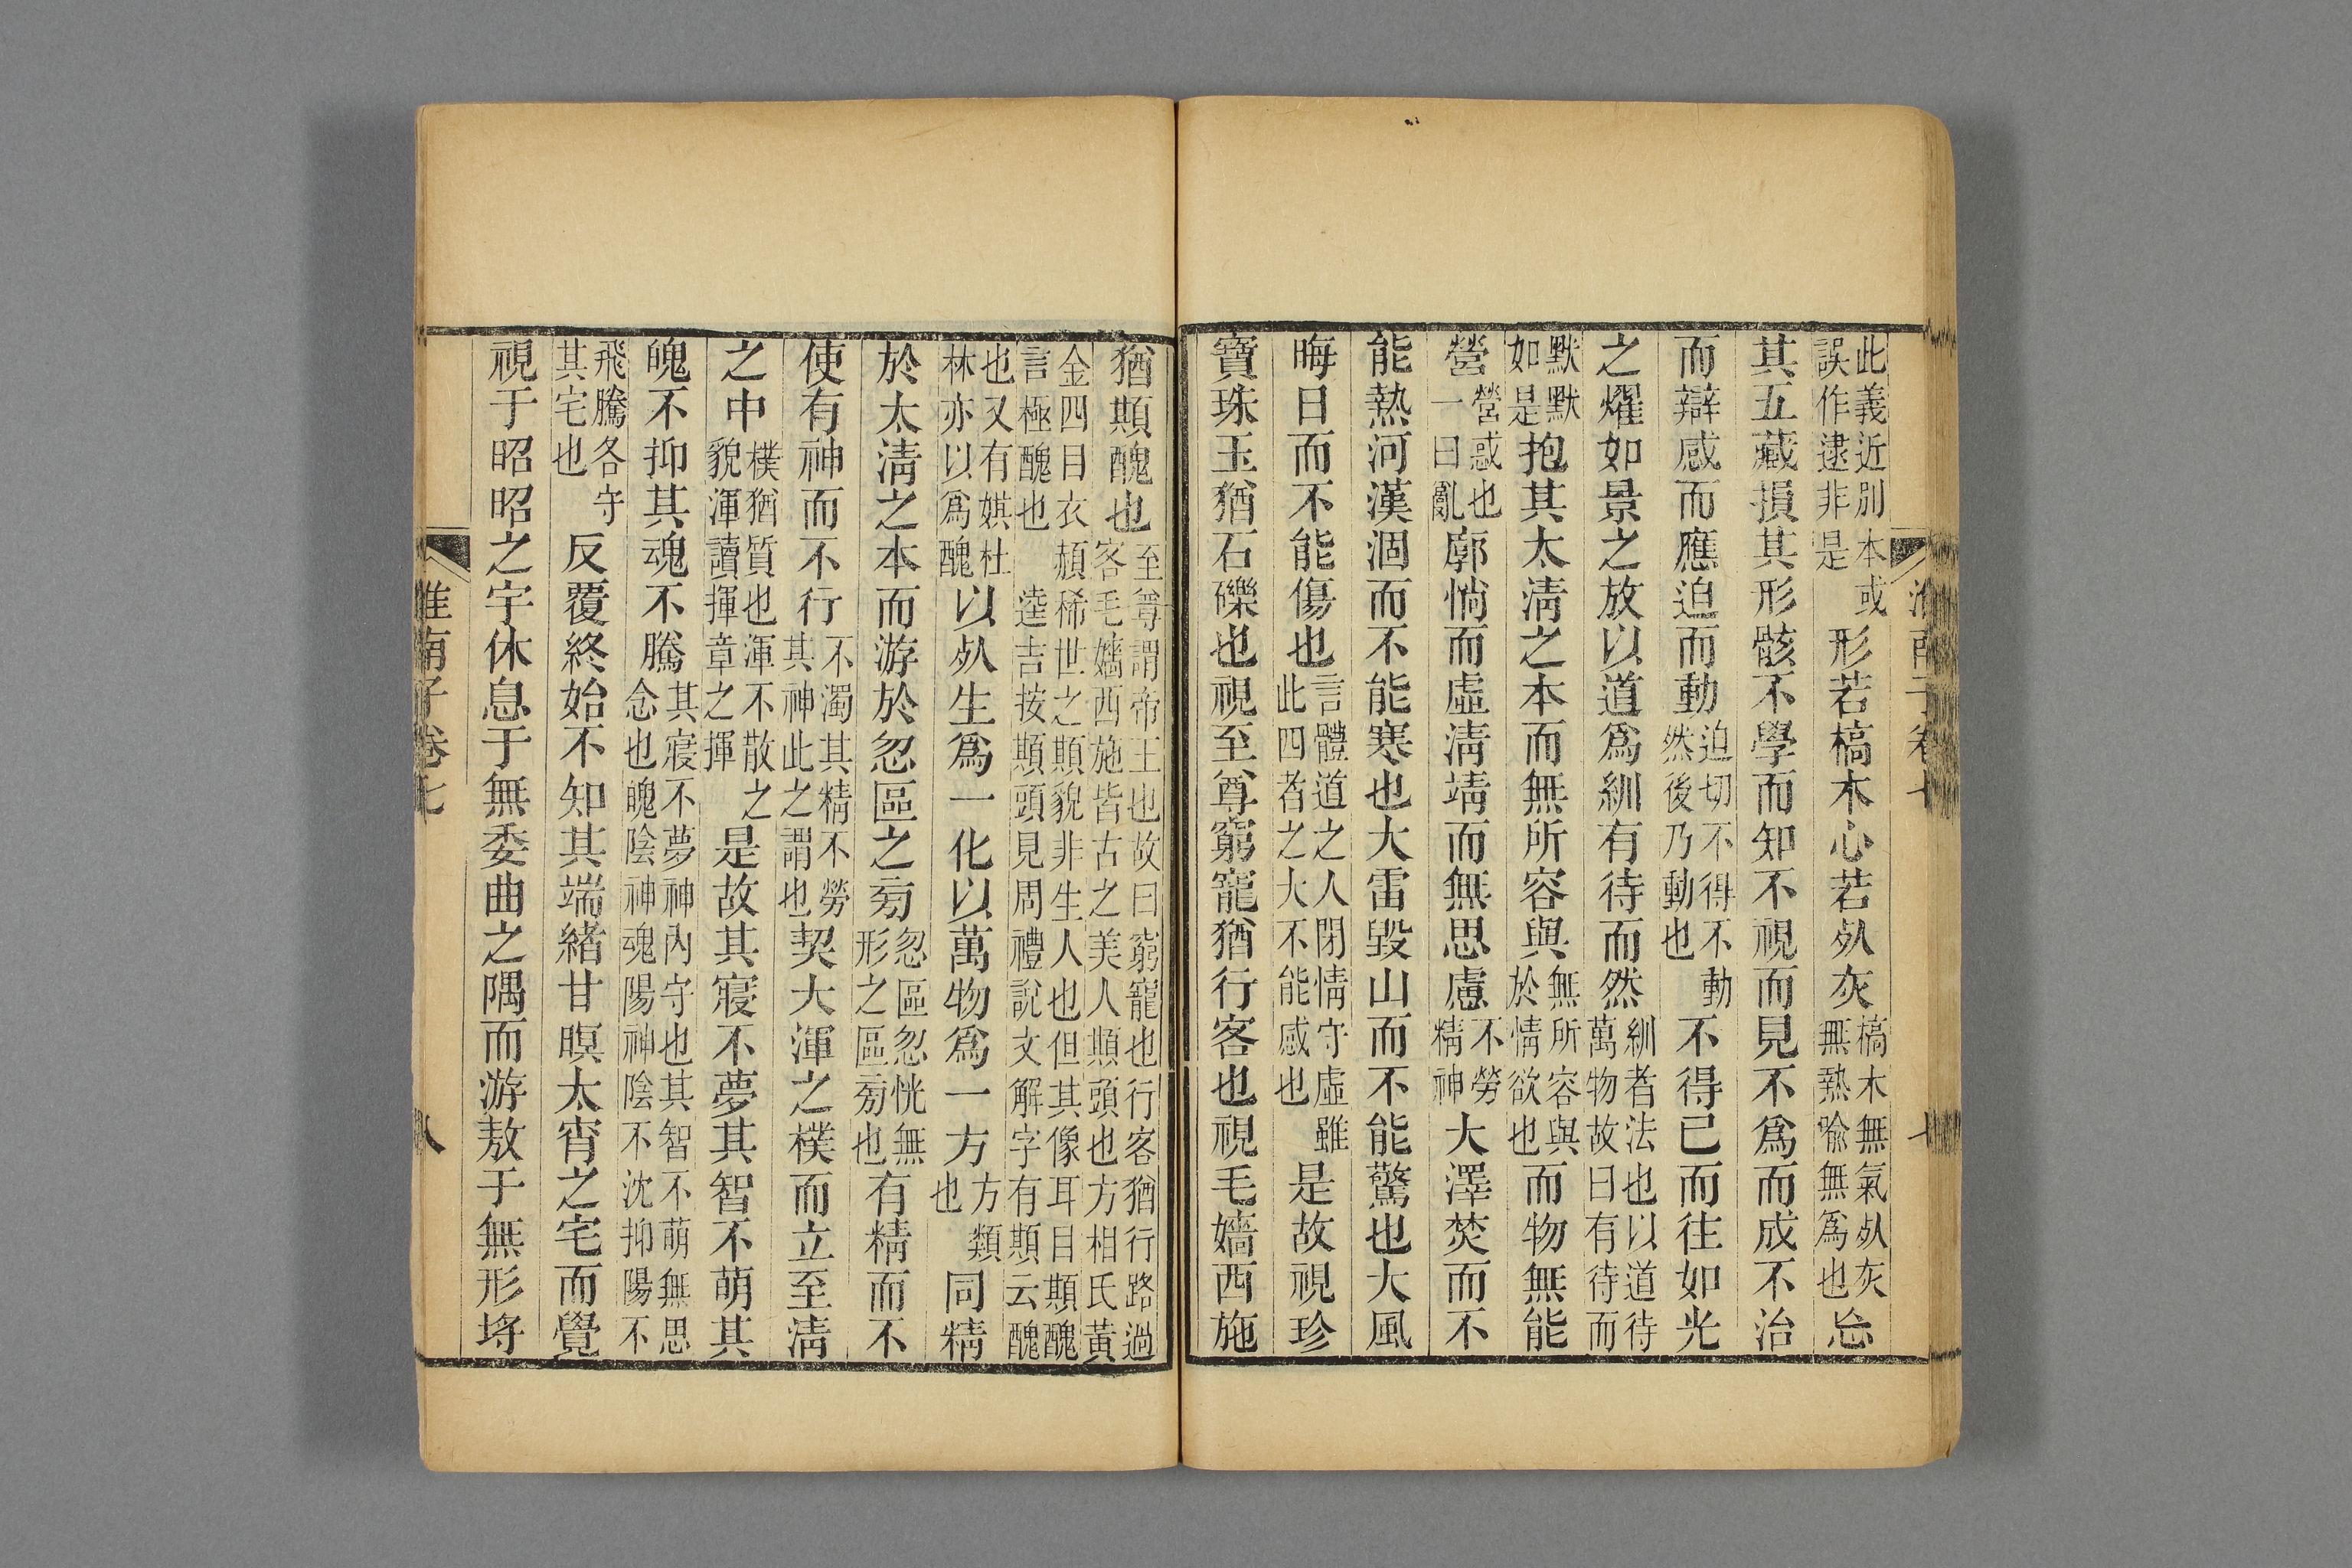 淮南子卷七 七
此義近別本或誤作逮非是形若槁木心若𣦸灰槁木無氣𣦸灰無熱喻無爲也忘
其五藏損其形骸不學而知不視而見不爲而成不治
而辯感而應迫而動迫切不得不動然後乃動也不得已而往如光
之燿如景之放以道爲紃有待而然紃者法也以道待萬物故曰有待而
默默如是抱其太清之本而無所容與無所容與於情欲也而物無能
營營惑也一曰亂廓惝而虛清靖而無思慮不勞精神大澤焚而不
能熱河漢涸而不能寒也大雷毀山而不能驚也大風
晦日而不能傷也言體道之人閉情守虛雖此四者之大不能感也是故視珍
寶珠玉猶石礫也視至尊窮寵猶行客也視毛嬙西施
猶䫏醜也至尊謂帝王也故曰窮寵也行客猶行路過客毛嬙西施皆古之美人䫏頭也方相氏黃
金四目衣赬稀世之䫏貌非生人也但其像耳目䫏醜言極醜也 逵吉按䫏頭見周禮說文解字有䫏云醜
也又有娸杜林亦以爲醜以𣦸生爲一化以萬物爲一方方類也同精
於太清之本而游於忽區之㫄忽區忽恍無形之區㫄也有精而不
使有神而不行不濁其精不勞其神此之謂也契大渾之樸而立至清
之中樸猶質也渾不散之貌渾讀揮章之揮是故其寢不夢其智不萌其
魄不抑其魂不騰其寢不夢神內守也其智不萌無思念也魄陰神魂陽神陰不沈抑陽不
飛騰各守其宅也反覆終始不知其端緒甘暝太宵之宅而覺
視于昭昭之宇休息于無委曲之隅而游敖于無形埒
淮南子卷七 八